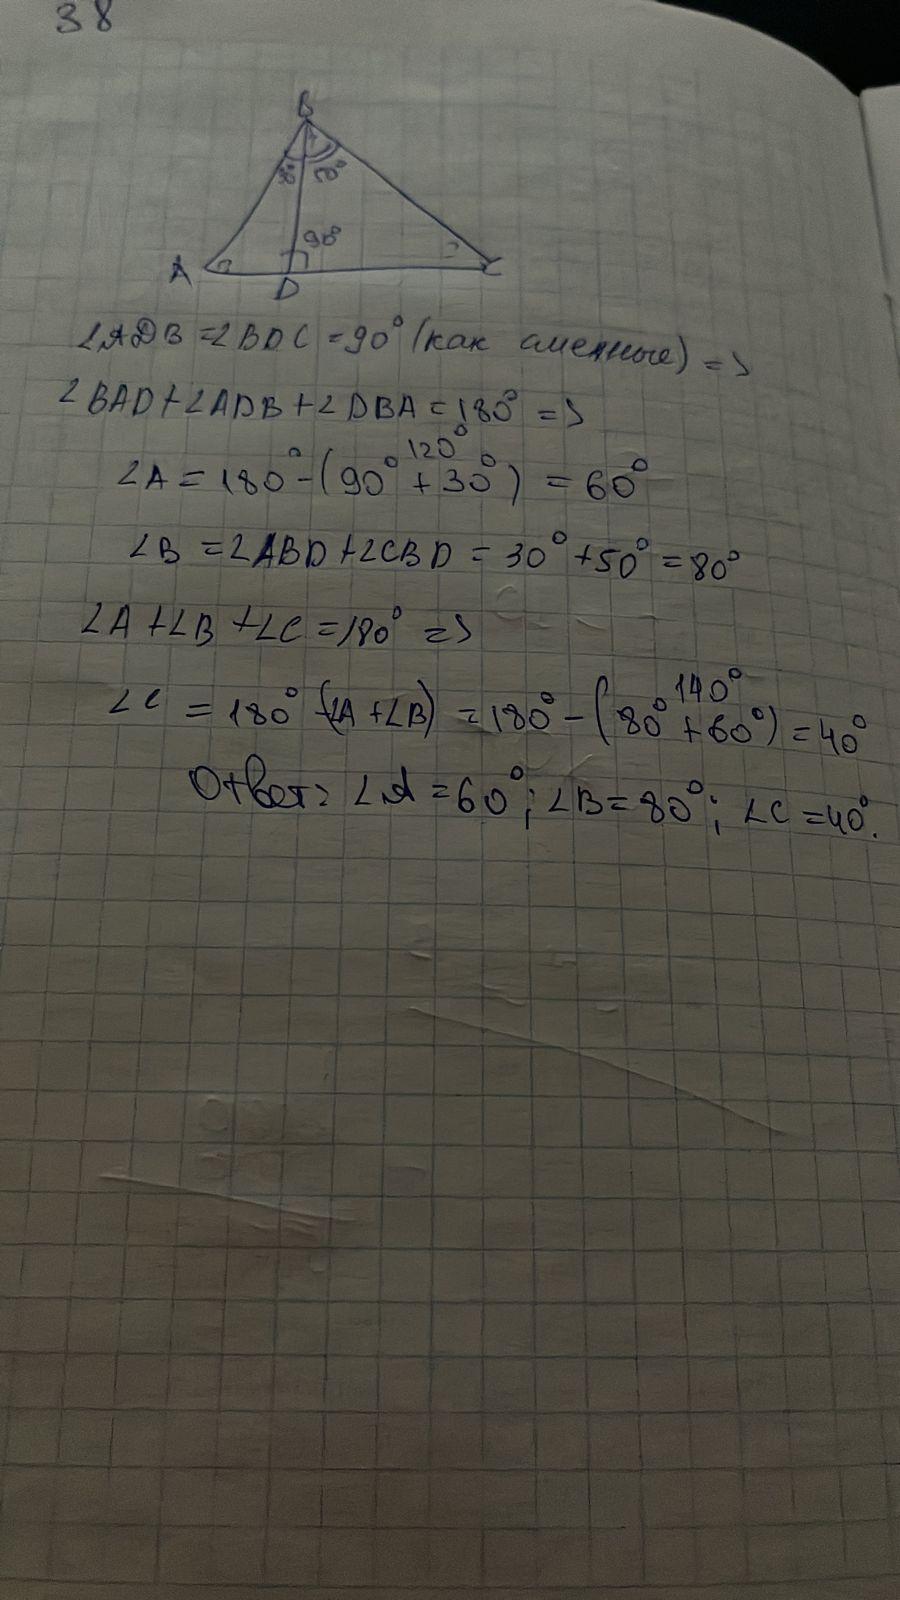 38
B
30° 50°
90°
A ? ? C
D
∠ADB = ∠BDC = 90° (как смежные) =>
∠BAD + ∠ADB + ∠DBA = 180° =>
120°
∠A = 180° - (90° + 30°) = 60°
∠B = ∠ABD + ∠CBD = 30° + 50° = 80°
∠A + ∠B + ∠C = 180° =>
140°
∠C = 180° - (∠A + ∠B) = 180° - (80° + 60°) = 40°
Ответ: ∠A = 60°; ∠B = 80°; ∠C = 40°.